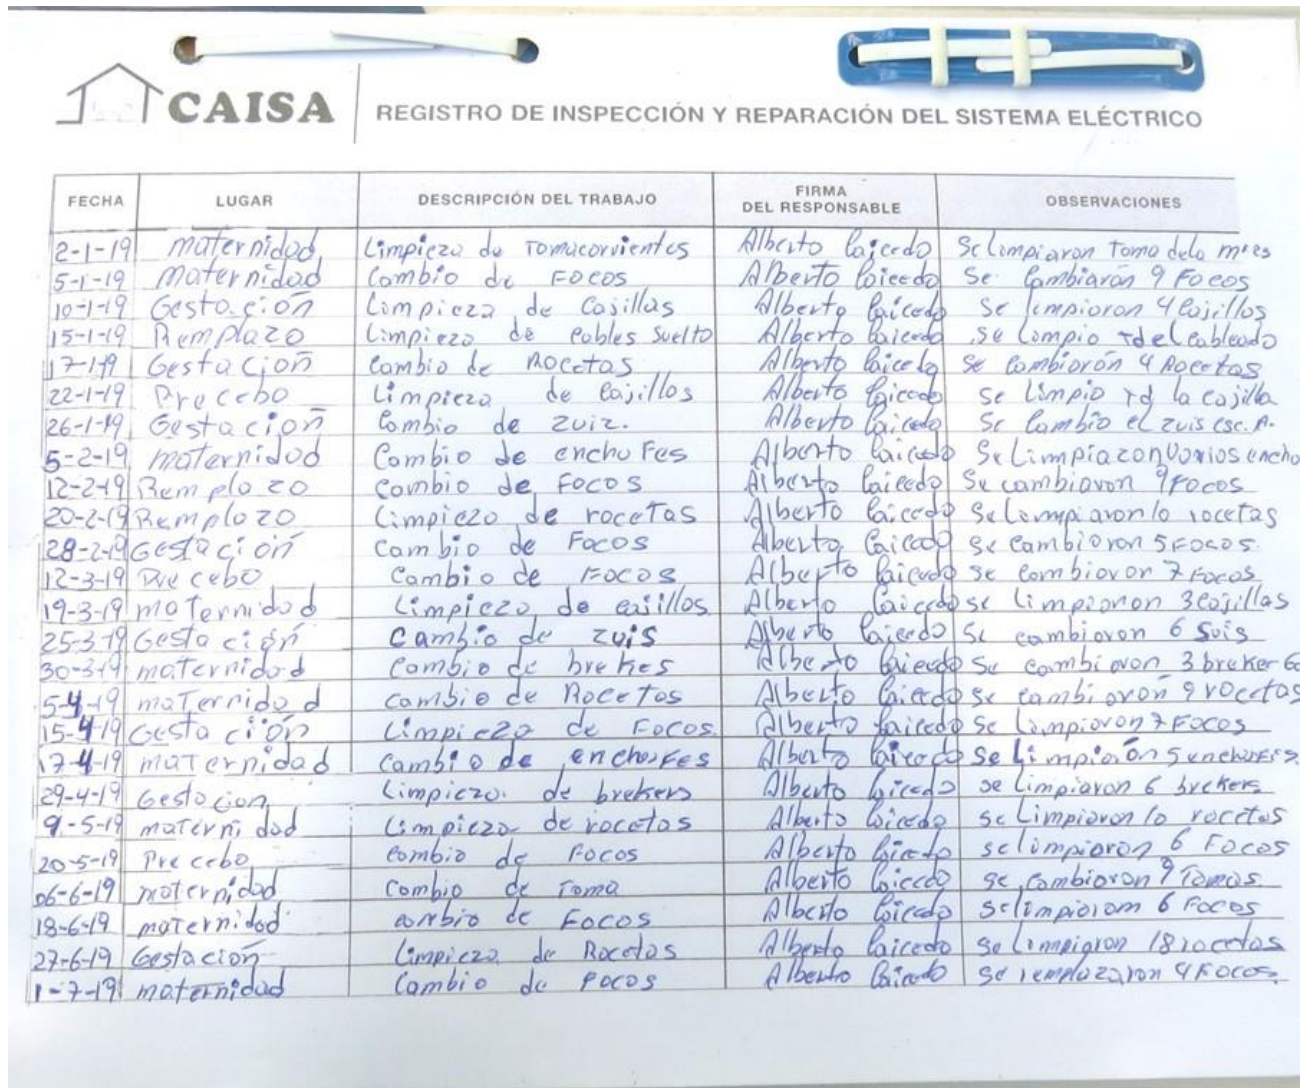 CAISA REGISTRO DE INSPECCIÓN Y REPARACIÓN DEL SISTEMA ELÉCTRICO
FECHA LUGAR DESCRIPCIÓN DEL TRABAJO FIRMA DEL RESPONSABLE OBSERVACIONES
2-1-19 maternidad Limpieza de Tomacorrientes Alberto Caicedo Se limpiaron Toma dela
5-1-19 Maternidad Cambio de Focos Alberto Caicedo Se Cambiarón 9 Focos
10-1-19 Gestación Limpieza de Casillas Alberto Caicedo Se limpiaron 4 Cajillos
15-1-19 Remplazo Limpieza de Cables Suelto Alberto Caicedo se Limpio del Cableado
17-1-19 Gestación Cambio de Rocetas Alberto Caicedo Se Cambiarón 4 Rocetas
22-1-19 Precebo Limpieza de Cajillos Alberto Caicedo Se Limpio la cajilla
26-1-19 Gestación Cambio de zuiz. Alberto Caicedo Se Cambio el zuis esc. A.
5-2-19 maternidad Cambio de enchufes Alberto Caicedo Se Limpiazon Varios encho
12-2-19 Remplazo Cambio de Focos Alberto Caicedo Se cambiaron 9 Focos
20-2-19 Remplazo Limpiezo de rocetas Alberto Caicedo Se Limpiaron 10 rocetas
28-2-19 Gestación Cambio de Focos Alberto Caicedo se Cambiaron 5 Focos.
12-3-19 Precebo Cambio de Focos Alberto Caicedo se Cambiovon 7 Focos
19-3-19 maternidad Limpiezo de cajillos Alberto Caicedo se limpiaron 3 cajillas
25-3-19 Gestación Cambio de zuis Alberto Caicedo Se cambiaron 6 Suis
30-3-19 maternidad Cambio de brekes Alberto Caicedo Se cambiaron 3 breker 60
5-4-19 maternidad cambio de Rocetos Alberto Caicedo se cambiaron 9 rocetas
15-4-19 Gestación Limpiezo de Focos Alberto Caicedo se limpiaron 7 Focos
17-4-19 maternidad Cambio de Alberto Caicedo Se 5
29-4-19 Gestacion Limpiezo. de brekers Alberto Caicedo se limpiaron 6 brekers
9-5-19 maternidad Limpieza de rocetas Alberto Caicedo se Limpiaron 10 rocetas
20-5-19 Precebo Cambio de Focos Alberto Caicedo se limpiaron 6 Focos
06-6-19 maternidad Cambio de Toma Alberto Caicedo se cambiaron 9 Tomas.
18-6-19 maternidad cambio de Focos Alberto Caicedo se limpiaron 6 Focos
27-6-19 Gestación Limpieza de Rocetas Alberto Caicedo se limpiaron 18 rocetas
1-7-19 maternidad Cambio de Focos Alberto Caicedo se remplazaron 4 Focos.